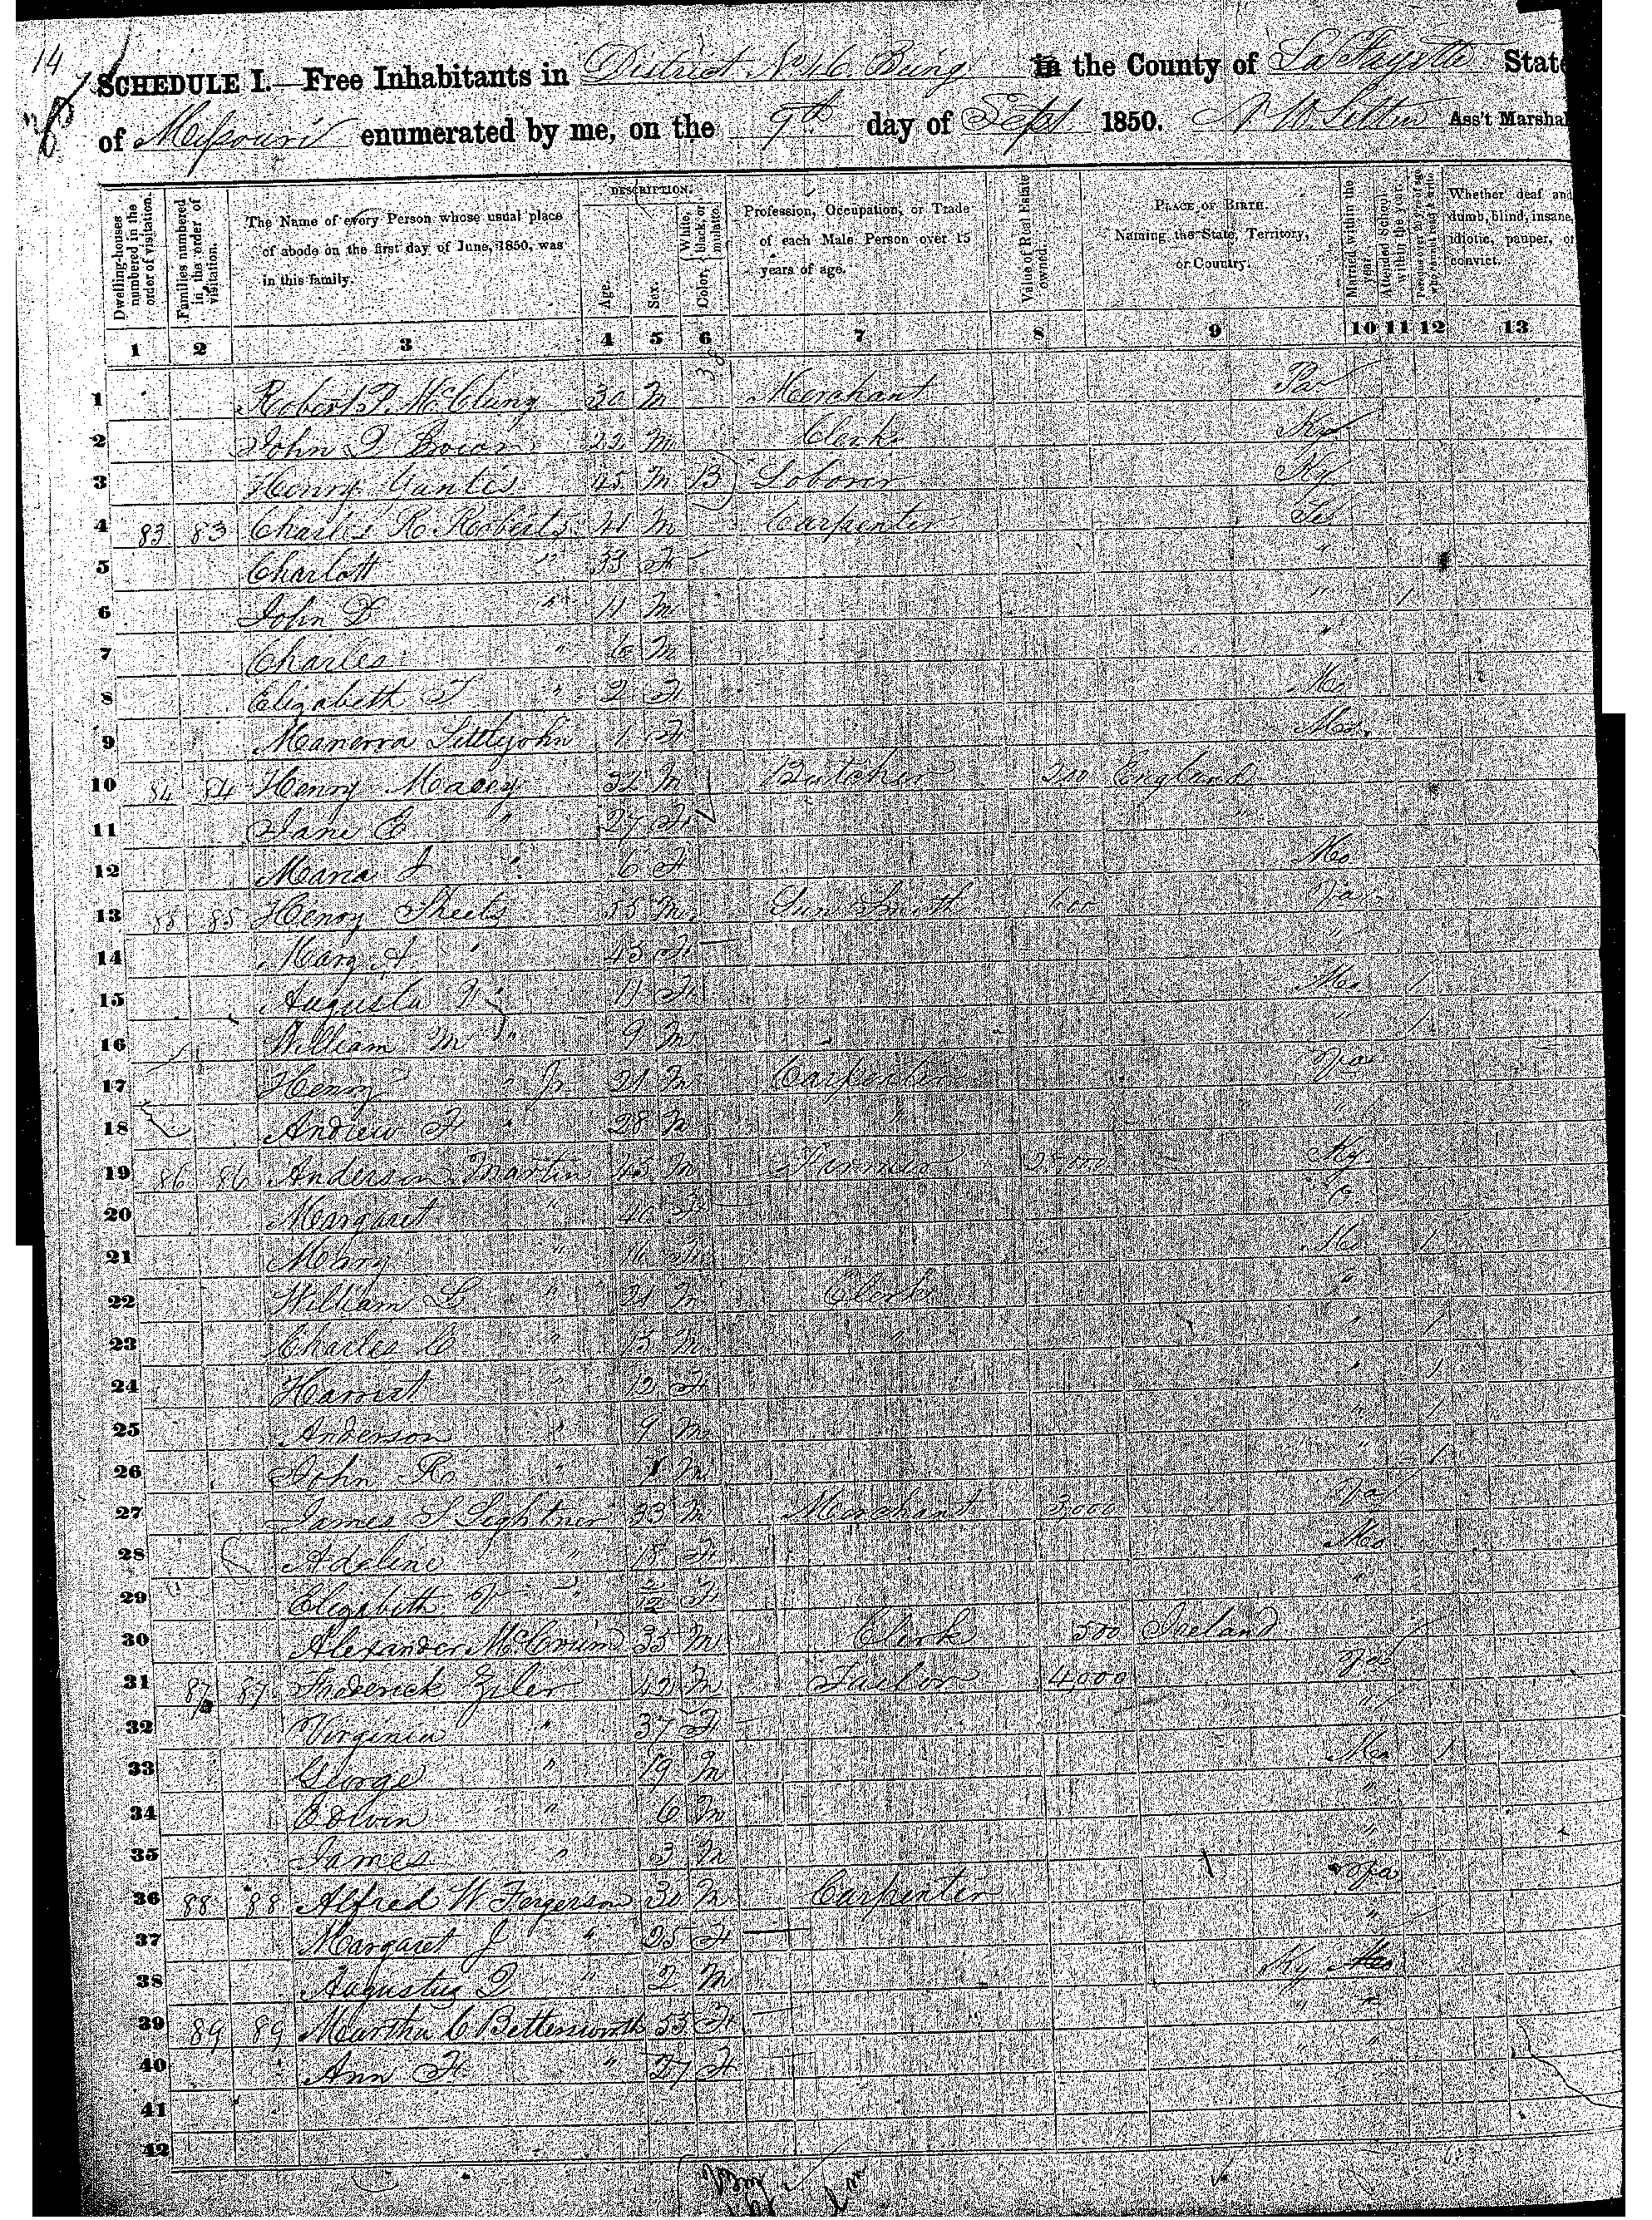 14
SCHEDULE I.—Free Inhabitants in District No 46 Being in the County of La Fayette State
of Missouri enumerated by me, on the 9th day of Sept 1850. Ass't Marshal
DESCRIPTION.
Dwelling-houses numbered in the order of visitation.
Families numbered in the order of visitation.
The Name of every Person whose usual place of abode on the first day of June, 1850, was in this family.
Age.
Sex.
Color, White, black, or mulatto.
Profession, Occupation, or Trade of each Male Person over 15 years of age.
Value of Real Estate owned.
PLACE OF BIRTH. Naming the State, Territory, or Country.
Married within the year.
Attended School within the year.
Persons over 20 y'rs of age who cannot read & write.
Whether deaf and dumb, blind, insane, idiotic, pauper, or convict.
1 2 3 4 5 6 7 8 9 10 11 12 13
1 Robert P. McClung 30 M Merchant Pa
2 John 22 M Clerk Ky
3 Henry 45 M B Laborer Ky
4 83 83 Charles R Roberts M Carpenter
5 Charlott " 33 F "
6 John D " 11 M " 1
7 Charles " 6 M "
8 Elizabeth T " 2 F Mo
9 Manerva Littlejohn 1 F Mo.
10 84 84 Henry Macey 32 M Butcher 200 England
11 Jane E " 27 F "
12 Maria J " 6 F Mo
13 85 85 Henry Sheets 55 M Gun Smith 600 Va
14 Mary A " 45 F "
15 Augusta " 11 F Mo 1
16 William M " 9 M " 1
17 Henry " Jr. 21 M Carpenter Va
18 Andrew F " 28 M " "
19 86 86 Anderson Martin 45 M Ky
20 Margaret " 40 F "
21 Mary " 16 F Mo 1
22 William L " 21 M Clerk "
23 Charles C " 15 M " " 1
24 Harriet " 12 F " 1
25 Anderson " 9 M " 1
26 John R " M " 1
27 James S Lightner 33 M Merchant 3,000 Va
28 Adeline " 18 F Mo
29 Elizabeth V " 2/12 F "
30 Alexander McCrum 35 M Clerk 500 Ireland
31 87 87 Frederick Zeiler 42 M Tailor 4,000 Va
32 Virginia " 37 F "
33 George " 19 M Mo 1
34 Edwin " 6 M "
35 James " 3 M "
36 88 88 Alfred W Fergerson 30 M Carpenter Va
37 Margaret J " 25 F "
38 Augustus " 2 M Ky Mo
39 89 89 Martha C Bettersworth 55 F " "
40 Ann F. " 27 F " "
41
42